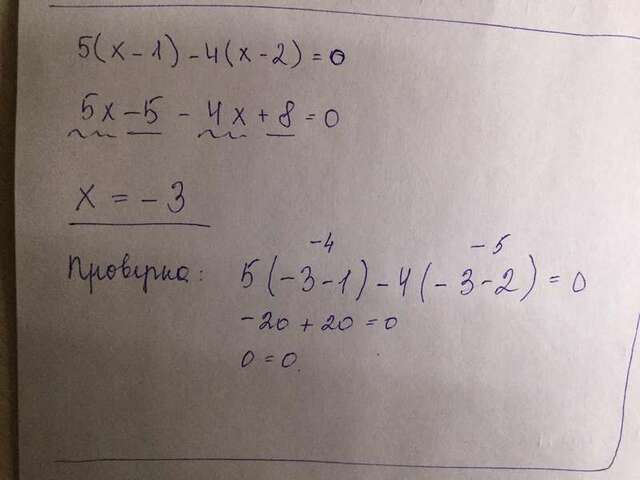 5(x-1)-4(x-2)=0
5x-5-4x+8=0
x=-3
-4 -5
Проверка: 5(-3-1)-4(-3-2)=0
-20+20=0
0=0.